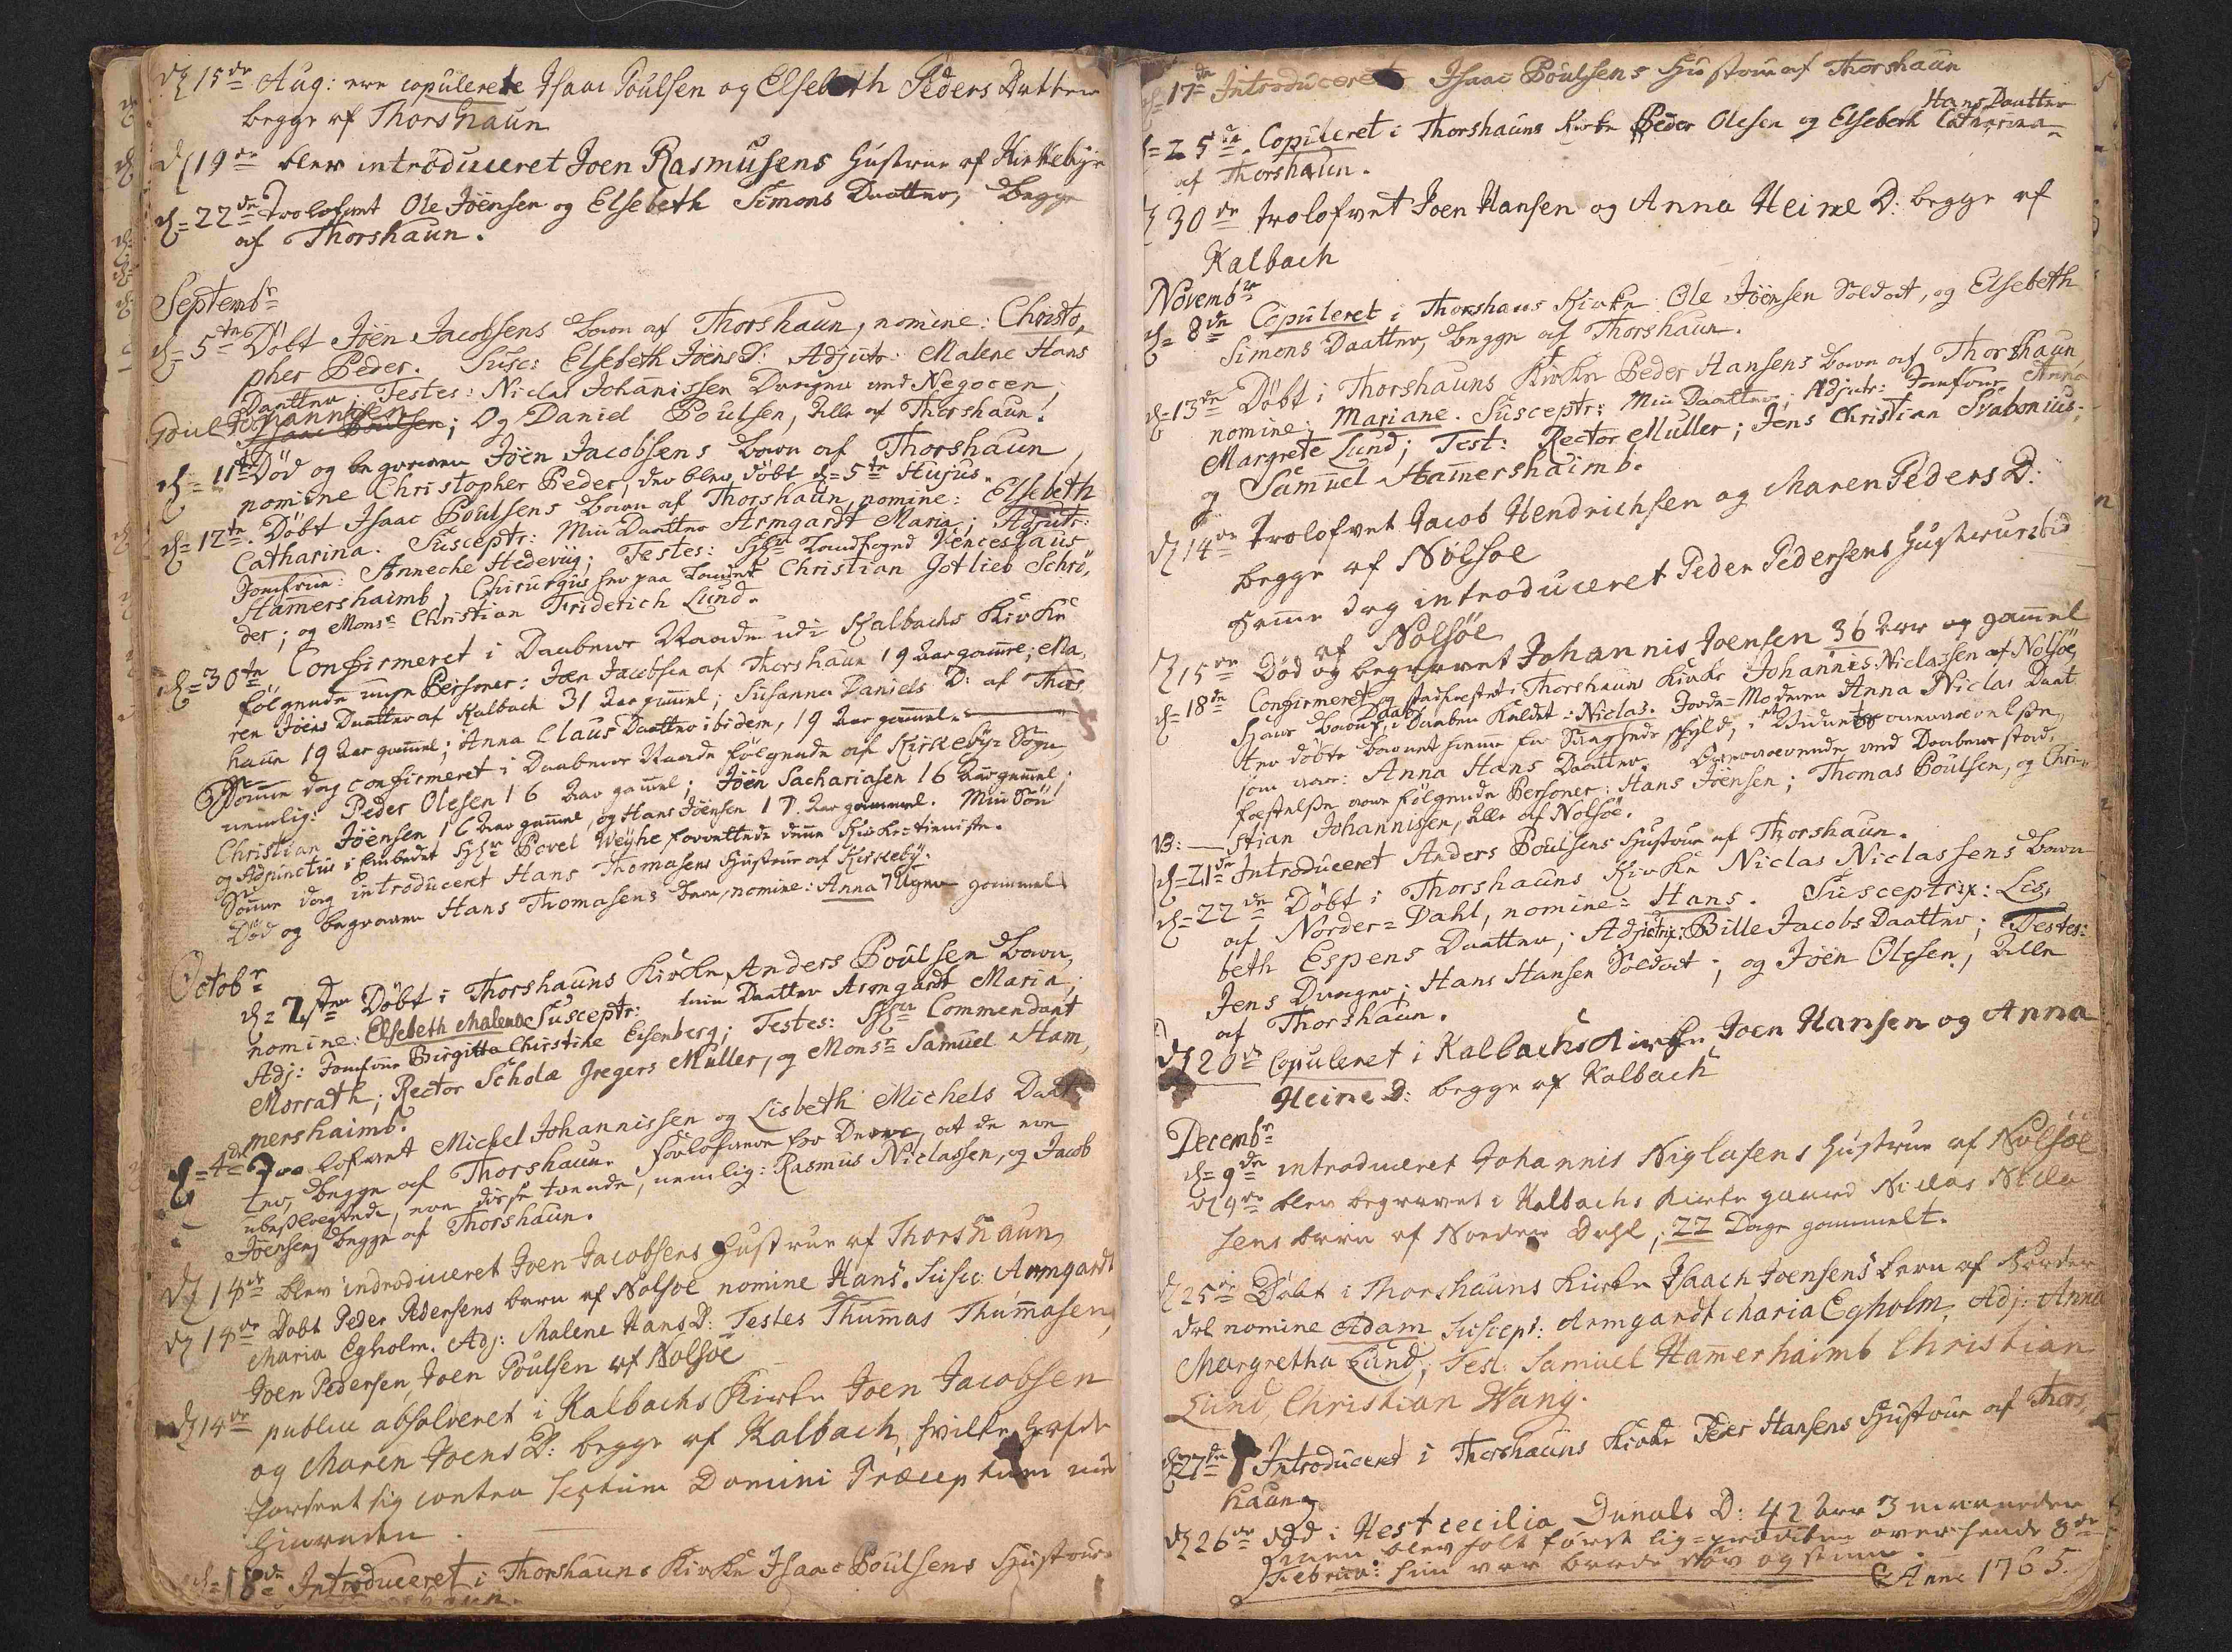 15de Aug: ere copulerete Isaac Poulsen og Elsebeth Peders Datter
begge af Thorshaun
19de blev introduceret Joen Rasmusens Hustrue af Kirkebÿe
d=22de Trolofvet Ole Jöensen og Elsebeth Simons Daatter, begge
af Thorshaun.
Septembr
d=5te Döbt Jöen Jacobsens barn af Thorshaun, nomine: Christo,
pher Peder. Susc: Elsebeth Jöens D: Adjutr: Malene Hans
Daatter; Testes: Niclas Johannissen Dreyer ved Negocen,
Poul Johannisen
Isaac Poulsen; Og Daniel Poulsen, Alle af Thorshaun.
d=11te Död og begraven Jöen Jacobsens barn af Thorshaun,
nomine Christopher Peder, der blev döbt d=5te Hujus.
d=12te. Döbt Isaac Poulsens barn af Thorshaun, nomine: Elsebeth
Catharina. Susceptr: Min Daatter Armgardt Maria; Adjutr:
Jomfrue: Annecke Hedevig; Testes: Landfoged Venceslaus
Hamershaimb, Chirurgus her paa Landet Christian Gotlieb Schrö,
der; og Monsr Christian Friderich Lund.
d=30te Confirmeret i Daabens Naade udi Kalbachs Kirke
fölgende unge Personer: Joen Jacobsen af Thorshaun 19 Aar gamle; Ma,
ren Jöens Daatter af Kalbach 31 Aar gammel; Susanna Daniels D: af Thors
haun 19 Aar gammel; Anna Claus Daatter ibidem, 19 Aar gammel.
Samme dag confirmeret i Daabens Naade fölgende af Kirkebÿe Sogn
nemlig: Peder Olesen 16 Aar gammel; Jöen Sachariasen 16 Aar gammel;
Christian Jöensen 16 Aar gammel, og Hans Jöensen 17 Aar gammel. Min Sön
og Adjunctus i Embedet Hr Povel Weÿhe forrettede denne Kirke=tieniste.
Samme dag introduceret Hans Thomasens Hustrue af Kirkebÿ.
Död og begraven Hans Thomasens barn, nomine: Anna 7 Uger gammel
Octobr
d=2den Döbt i Thorshauns Kirke Anders Poulsen barn,
nomine: Elsebeth Malena Susceptr: min Daatter Armgardt Maria;
Adj: Jomfrue Birgitta Christine Eisenberg; Testes: Hr Commendant
Morrath; Rector Scholæ Gregers Müller, og Monsr Samuel Ham,
mershaimb.
d=4de Trolofvet Michel Johannissen og Lisbeth Michels Daat
ter, begge af Thorshaun. Forlovere for Deres, at de ere
ubeslegtede, ere disse tvende, nemlig: Rasmus Niclassen, og Jacob
Jöensen, begge af Thorshaun.
14de blev indroduceret Joen Jacobsens Hustrue af Thorshaun
14de Döbt Peder Pedersens barn af Nolsoe nomine Hans. Susc: Armgardt
Maria Egholm. Adj: Malene Hans D: Testes Thummas Thummasen,
Joen Pedersen, Joen Poulsen af Nolsoe
14de public absolveret i Kalbachs Kirke Joen Jacobsen
og Maren Joens D: begge af Kalbach, hvilke hafde
forseet sig contra sextum Domini Præceptum med
hinanden.
d=18de Introduceret i Thorshauns Kirke Isaac Poulsens Hustrue
d=17de Introduceret Isaac Poulsens Hustrue af Thorshaun
Hans Daatter
d=25de. Copuleret i Thorshauns Kirke Peder Olesen og Elsebeth Catharina
af Thorshaun.
30de trolofvet Joen Hansen og Anna Heine D: begge af
Kalbach
Novembr
d=8de Copuleret i Thorshaus Kirke Ole Jöensen Soldat, og Elsebeth
Simons Daatter, begge af Thorshaun.
d=13de Döbt i Thorshauns Kirke Peder Hansens barn af Thorshaun
nomine: Mariane. Susceptr: Min Daatter; Adjutr: Jomfrue Anna
Margrete Lund; Test: Rector Müller; Jens Christian Svabonius;
og Samuel Hamershaimb.
14de Trolofvet Jacob Hendrichsen og Maren Peders D:
begge af Nolsoe
Samme dag introduceret Peder Pedersens Hustrue
af Nolsöe
15de Död og begravet Johannis Joensen 36 Aar gammel
d=18de Confirmeret og stadfæstet i Thorshauns Kirke Johannis Niclassen af Nolsöe,
Hans barns Daab, i Daaben kaldet: Niclas. Jorde=Moderen Anna Niclas Daat
ter döbte barnet hiemme for Svagheds skyld, i
som var: Anna Hans Daatter. ved Daabens stad,
fæstelse vare fölgende Personer: Hans Jöensen; Thomas Poulsen, og Chri-
NB: stian Johannissen, Alle af Nolsöe.
d=21de Introduceret Anders Poulsens Hustrue af Thorshaun.
d=22de Döbt i Thorshauns Kirke Niclas Niclassens barn
af Norder=Dahl, nomine: Hans. Susceptrix: Lis,
beth Espens Daatter; Adjutrix: Bille Jacobs Daatter; Testes:
Jens Dreyer; Hans Hansen Soldat; og Jöen Olesen, Alle
af Thorshaun.
20de Copuleret i Kalbachs Kirke Joen Hansen og Anna
Heine D: begge af Kalbach
Decembr
d=9de introduceret Johannis Niglasens Hustrue af Nolsöe
9de blev begravet i Kalbachs Kirke gaard Niclas Nicla
sens barn af Norder Dahl, 22 Dage gammelt.
25de Döbt i Thorshauns Kirke Isaach Joensens barn af Norder
dal nomine Adam Suscept: Armgardt Maria Egholm, Adj: Anna
Margretha Lund, Test: Samuel Hamerhaimb Christian
Lund, Christian Wang.
d=27de Introduceret i Thorshauns Kirke Peder Hansens Hustrue af Thors,
haun
26de död i Hest Cecilia D: 42 Aar 3 maaneder
men blev holt først lig=prædiken over hende 8de
Februar: hun var baade döv og stum.
Anno 1765.